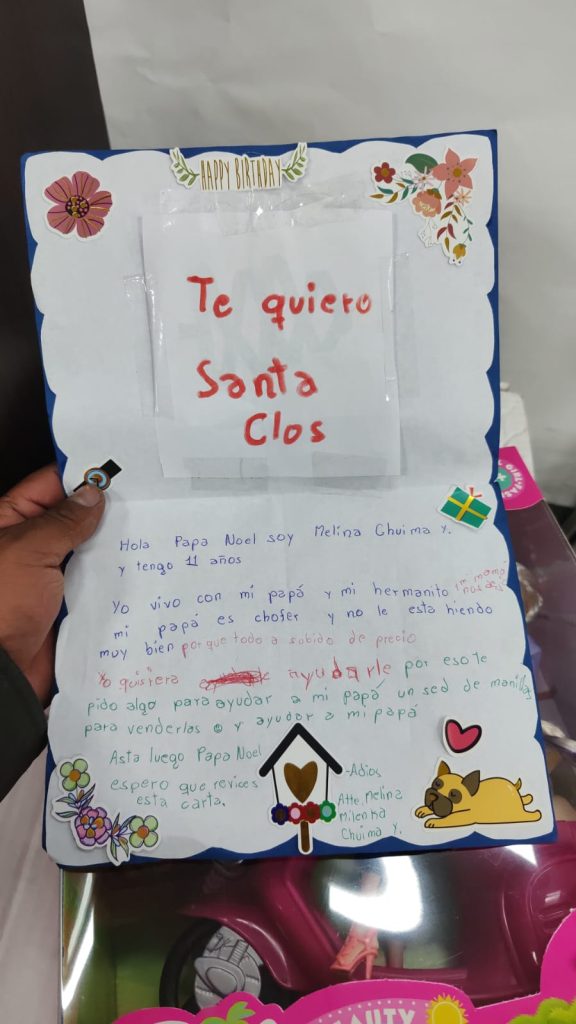 HAPPY BIRTHDAY
Te quiero
Santa
Clos
Hola Papa Noel soy Melina Chuima Y.
y tengo 11 años
Yo vivo con mi papá y mi hermanito (mi mamá
mi papá es chofer y no le esta hiendo
muy bien porque todo a sobido de precio
Yo quisiera ayudarle por eso te
pido algo para ayudar a mi papá un sed de manillas
para venderlas y ayudar a mi papá
Asta luego Papa Noel
espero que revices
esta carta.
-Adios
Atte. Melina
Milenka
Chuima Y.
BEAUTY